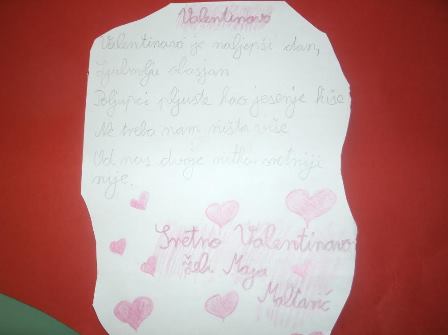 Valentinovo
Valentinovo je naljepši dan,
Ljubavlju obasjan
Poljupci pljušte kao jesenje kiše
Ne treba nam ništa više
Od nas dvoje nitko sretniji
nije.
Sretno Valentinovo
želi Maja